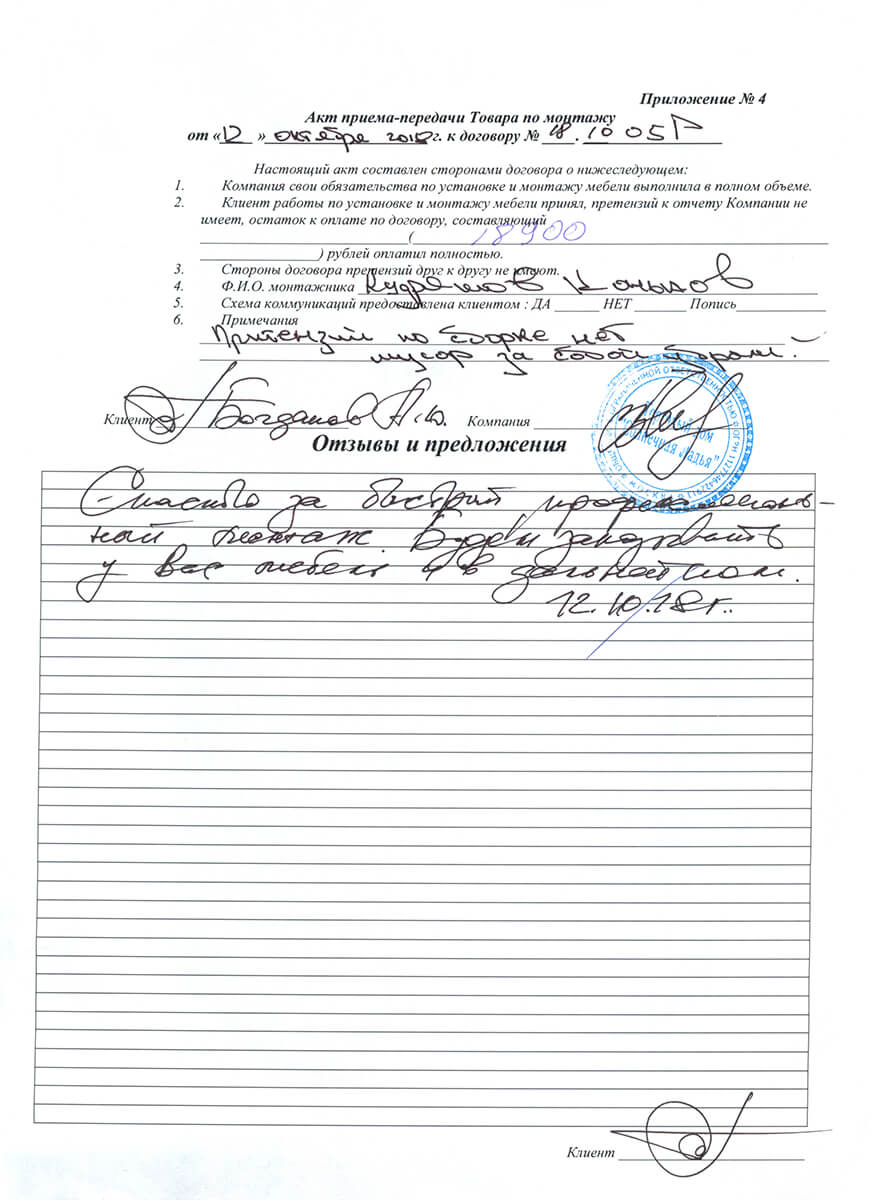 Приложение № 4
Акт приема-передачи Товара по монтажу
от «12» октября 2018г. к договору № 18.10 05Р
Настоящий акт составлен сторонами договора о нижеследующем:
1. Компания свои обязательства по установке и монтажу мебели выполнила в полном объеме.
2. Клиент работы по установке и монтажу мебели принял, претензий к отчету Компании не
имеет, остаток к оплате по договору, составляющий
( 18900
) рублей оплатил полностью.
3. Стороны договора претензий друг к другу не имеют.
4. Ф.И.О. монтажника
5. Схема коммуникаций предоставлена клиентом : ДА НЕТ Попись
6. Примечания
Притензий по сборке нет
мусор за собой
Клиент Богданов А.Ю. Компания
Отзывы и предложения
Спасибо за быстрый професиональ-
ный монтаж. Будем заказывать
у вас мебель и в дальнейшем.
12.10.18г.
Клиент